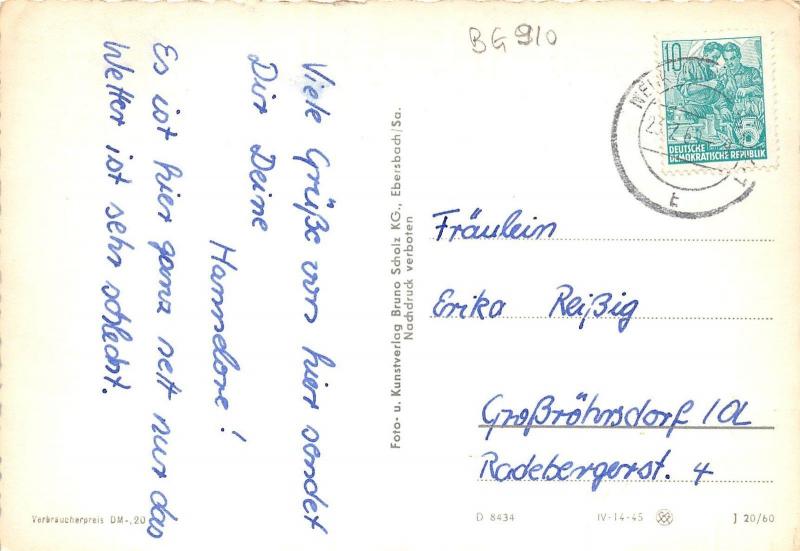 BG 910
Viele Grüße von hier sendet
Dir Deine
Hannelore!
Es ist hier ganz nett nur das
Wetter ist sehr schlecht.
Foto- u. Kunstverlag Bruno Scholz KG., Ebersbach/Sa.
Nachdruck verboten
10
5
DEUTSCHE
DEMOKRATISCHE REPUBLIK
Fräulein
Erika Reißig
Großröhrsdorf/OL
Radebergerst. 4
Verbraucherpreis DM -,20
D 8434
IV-14-45
J 20/60